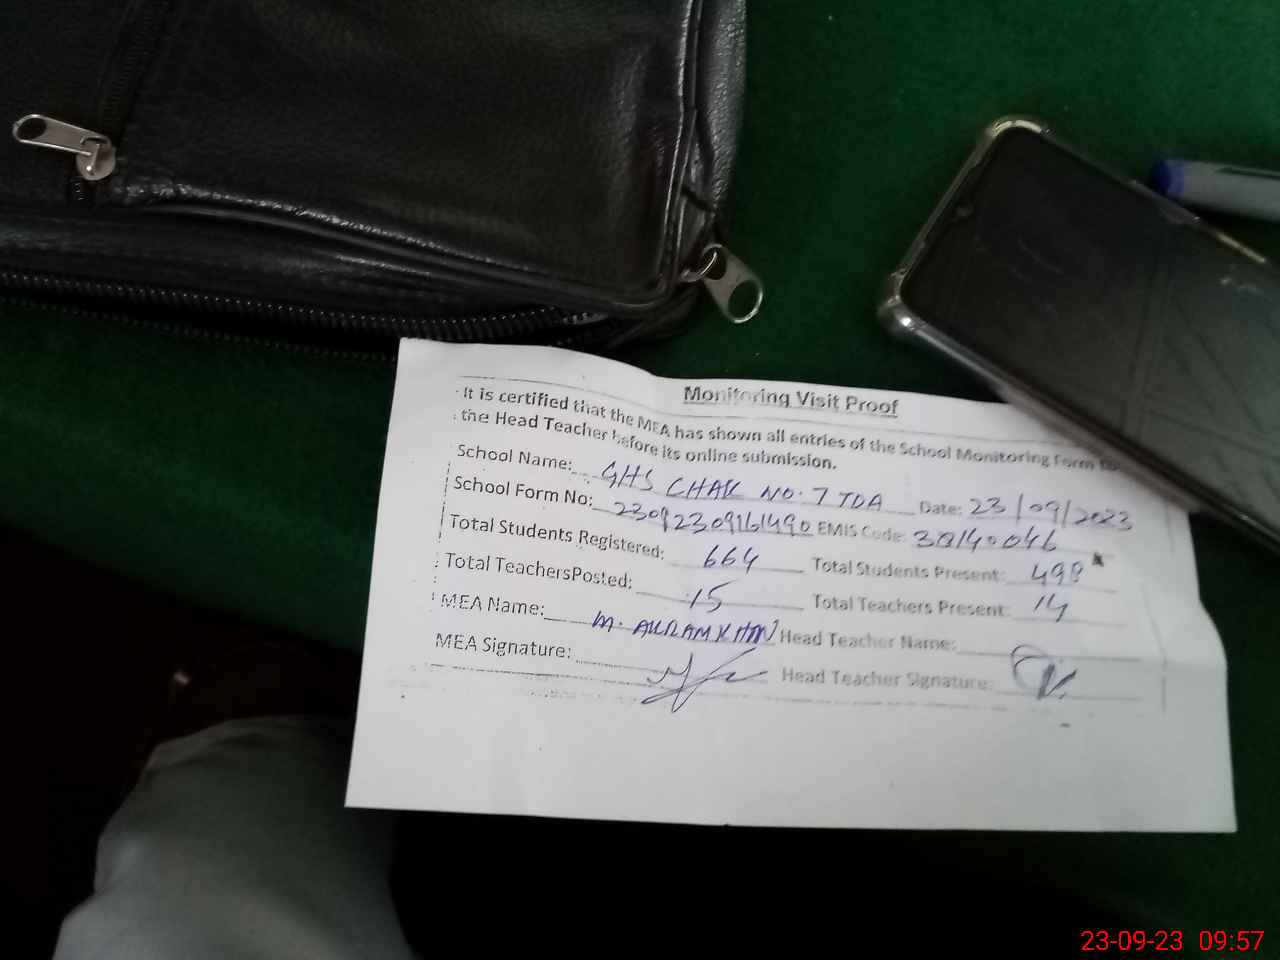 Monitoring Visit Proof
It is certified that the MEA has shown all entries of the School Monitoring Form to
the Head Teacher before its online submission.
School Name: GHS CHAK NO. 7 TDA Date: 23/09/2023
School Form No: 23092309161490 EMIS Code: 38140046
Total Students Registered: 664 Total Students Present: 498
Total TeachersPosted: 15 Total Teachers Present: 14
MEA Name: M. AKRAM KHAN Head Teacher Name:
MEA Signature: Head Teacher Signature:
23-09-23 09:57